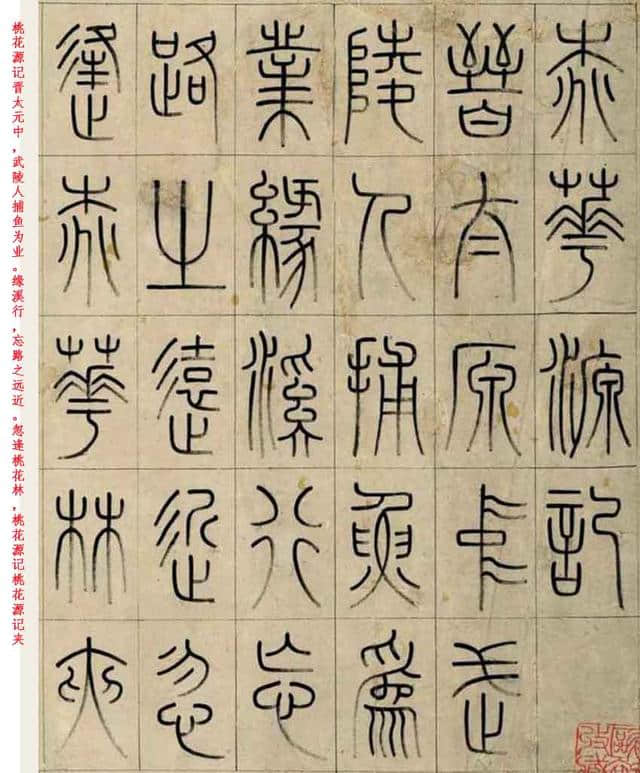 桃華源記
晉太原中武
陵人捕魚爲
業緣溪行忘
路之遠近忽
逢桃華林夾
桃花源记晋太元中，武陵人捕鱼为业。缘溪行，忘路之远近。忽逢桃花林，桃花源记桃花源记夹